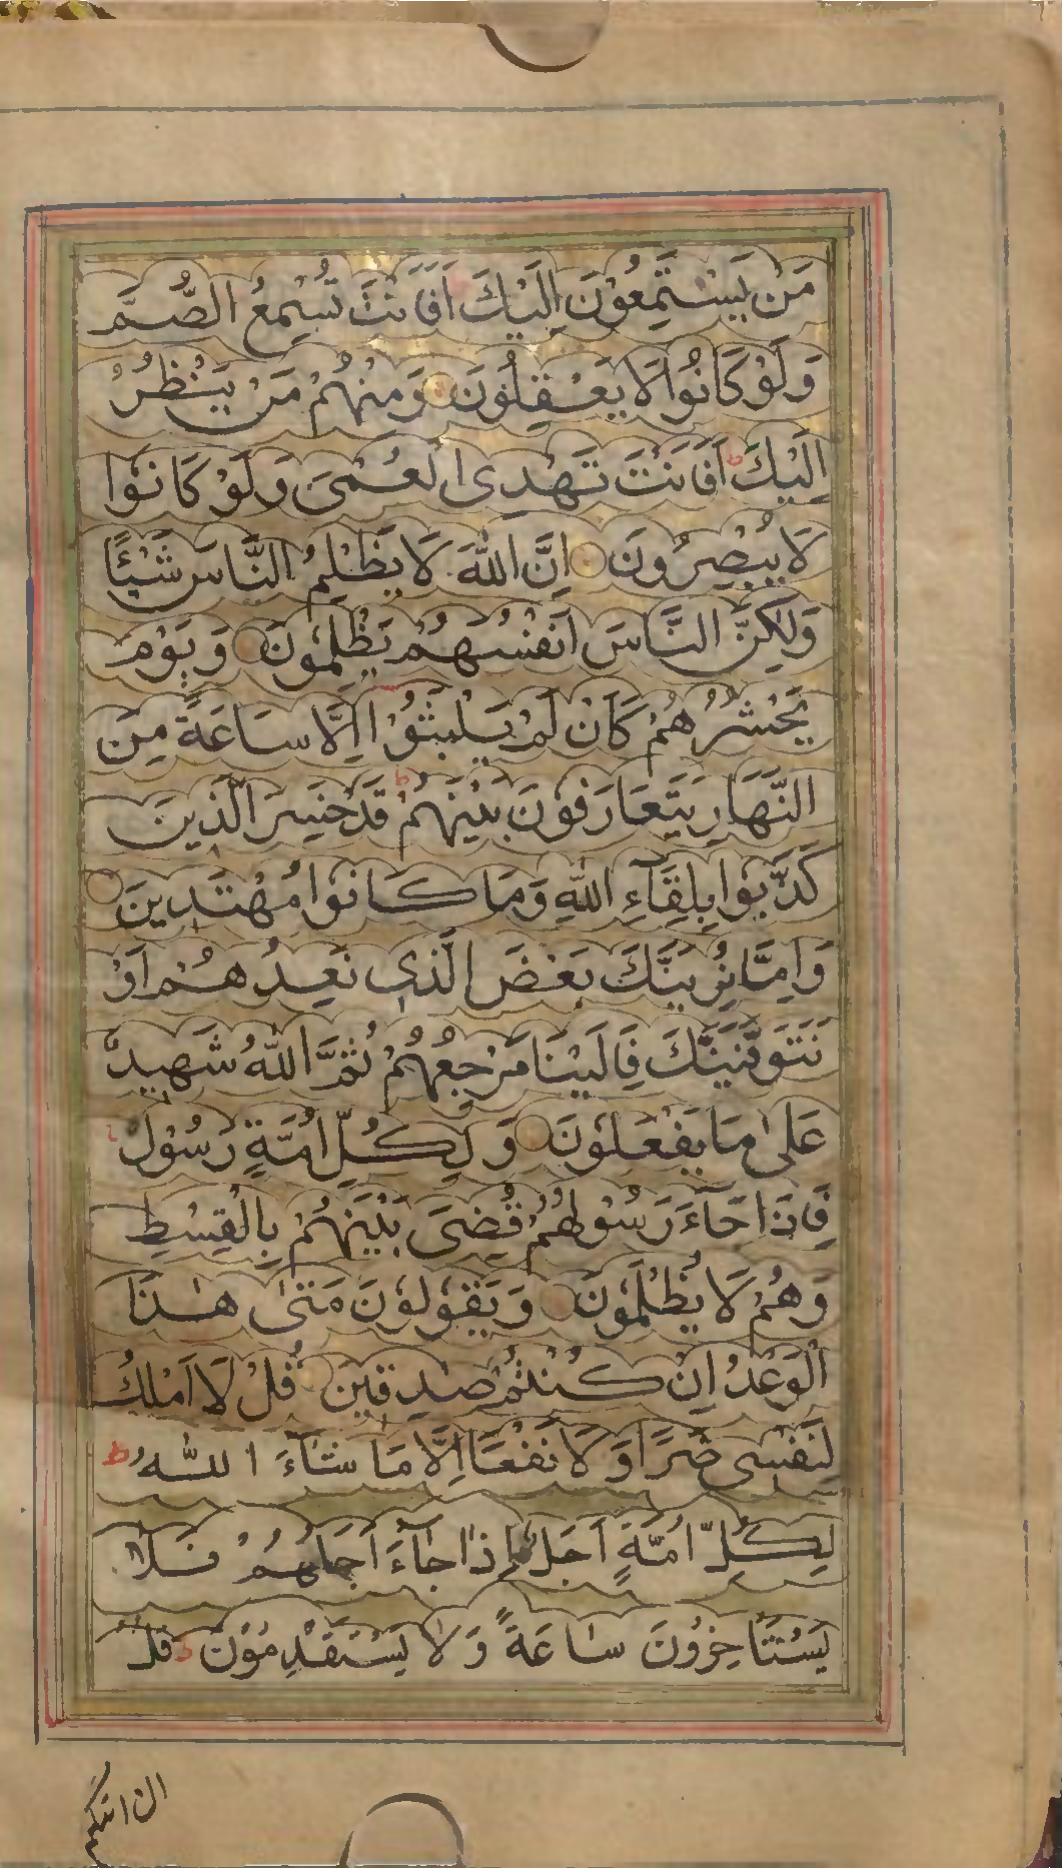 مَنْ يَسْتَمِعُوْنَ اِلَيْكَ اَفَاَنْتَ تُسْمِعُ الصُّمَّ
وَلَوْ كَانُوْا لَا يَعْقِلُوْنَ وَمِنْهُمْ مَنْ يَنْظُرُ
اِلَيْكَ ط اَفَاَنْتَ تَهْدِى الْعُمْىَ وَلَوْ كَانُوْا
لَا يُبْصِرُونَ اِنَّ اللّٰهَ لَا يَظْلِمُ النَّاسَ شَيْئًا
وَلٰكِنَّ النَّاسَ اَنْفُسَهُمْ يَظْلِمُوْنَ وَيَوْمَ
يَحْشُرُهُمْ كَاَنْ لَمْ يَلْبَثُوْا اِلَّا سَاعَةً مِنَ
النَّهَارِ يَتَعَارَفُوْنَ بَيْنَهُمْ ط قَدْ خَسِرَ الَّذِينَ
كَذَّبُوا بِلِقَآءِ اللّٰهِ وَمَا كَانُوا مُهْتَدِينَ
وَاِمَّا نُرِيَنَّكَ بَعْضَ الَّذِى نَعِدُهُمْ اَوْ
نَتَوَفَّيَنَّكَ فَاِلَيْنَا مَرْجِعُهُمْ ثُمَّ اللّٰهُ شَهِيدٌ
عَلٰى مَا يَفْعَلُوْنَ وَلِكُلِّ اُمَّةٍ رَسُوْلٌ
فَاِذَا جَآءَ رَسُوْلُهُمْ قُضِىَ بَيْنَهُمْ بِالْقِسْطِ
وَهُمْ لَا يُظْلَمُوْنَ وَيَقُوْلُوْنَ مَتٰى هٰذَا
الْوَعْدُ اِنْ كُنْتُمْ صٰدِقِيْنَ قُلْ لَا اَمْلِكُ
لِنَفْسِى ضَرًّا وَلَا نَفْعًا اِلَّا مَا شَآءَ اللّٰهُ ط
لِكُلِّ اُمَّةٍ اَجَلٌ اِذَا جَآءَ اَجَلُهُمْ فَلَا
يَسْتَاْخِرُوْنَ سَاعَةً وَلَا يَسْتَقْدِمُوْنَ قُلْ